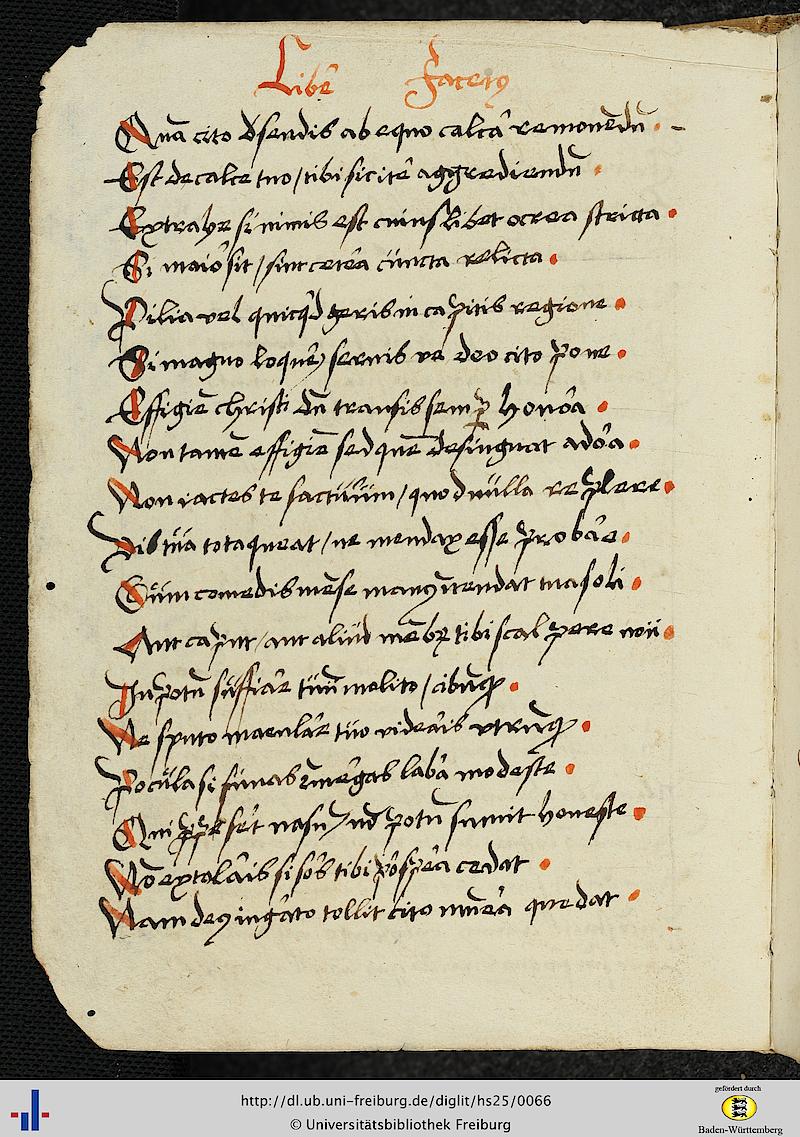 Libe᷒ Facetꝰ
Quā cito dʼsendis ab equo calcar̄ remonēdū
Est de calce tuo / tibi sicite᷒ aggrediendū
Extrahe si nimis est cuiuslibet ocrea stricta
Si maior̄ sit / sint cetēa cuncta relicta
Pilia vel quicqᷣd geris in capitis regione
Si magno loque᷒ʒ servis ve deo cito pone
Effigiē christi dū transis semꝑ honōa
Non tamē effigiē sed quē designat adōa
Non iactes te facturum / quod nulla replere
Vis tua tota queat / ne mendax esse probar̄e
Cum comedis mēse manꝰ ītendat tua soli
Aut caput / aut aliud mēbꝝ tibi scalpere noli
In potū suffla᷒r tuū nolito / cibūqꝫ
Ne sputo macular̄ tuo videāis vtrūqꝫ
Pocula si sumas ēmēgas laba modeste
Qui ꝑpeʳ set nasū / nd̄ potū sumit honeste
No extolāis si sōs tibi ꝓspēa cedat
Nam deꝰ ingāto tollit cito munēa que dat
http://dl.ub.uni-freiburg.de/diglit/hs25/0066
© Universitätsbibliothek Freiburg
gefördert durch
Baden-Württemberg